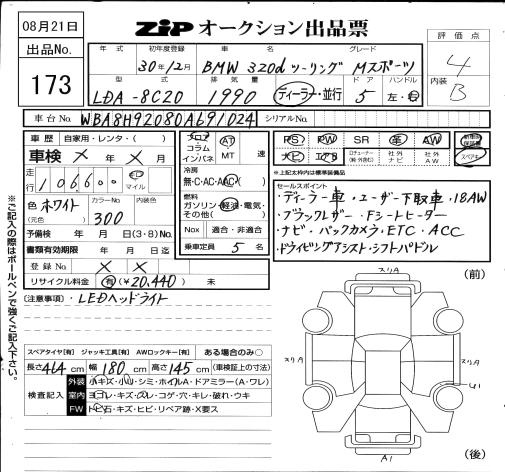 08月21日
ZIP オークション出品票
評価点
4
内装
B
出品No.
173
年式
初年度登録
車名
グレード
30年12月
BMW 320d ツーリング Mスポーツ
型式
排気量
ドア
ハンドル
LDA-8C20
1990
ディーラー・並行
5
左・右
車台No.
WBA8H92080A691024
シリアルNo.
車歴
自家用・レンタ・( )
フロア
コラム
インパネ
AT
MT
速
PS
PW
SR
革
AW
新車時保証書
車検 × 年 × 月
ナビ
エアB
社外ナビ
社外AW
スペアキー
走行
106,600
km
マイル
冷房
無・C・AC・AAC
※上記太枠内は標準装備品
色
(元色)
ホワイト
カラーNo.
300
内装色
燃料
ガソリン・軽油・電気・
その他( )
セールスポイント
・ディーラー車・ユーザー下取車・18AW
・ブラックレザー・Fシートヒーター
・ナビ・バックカメラ・ETC・ACC
・ドライビングアシスト・シフトパドル
予備検 年 月 日(3・8)No.
Nox
適合・非適合
書類有効期限 年 月 日迄
乗車定員
5 名
登録No. × ×
リサイクル料金
有 ¥20,440 未
(注意事項)・LEDヘッドライト
※ご記入の際はボールペンで強くご記入下さい。
(前)
スリA
スリA
スリA
U1
A1
(後)
スペアタイヤ[有] ジャッキ工具[有] AWロックキー[有] ある場合のみ○
長さ464cm 幅180cm 高さ145cm (車検証上の寸法)
検査記入
外装
小キズ・小凹・シミ・ホイルA・ドアミラー(A・ワレ)
室内
ヨゴレ・キズ・スレ・コゲ・穴・キレ・破れ・ウキ
FW
トビ石・キズ・ヒビ・リペア跡・X要ス